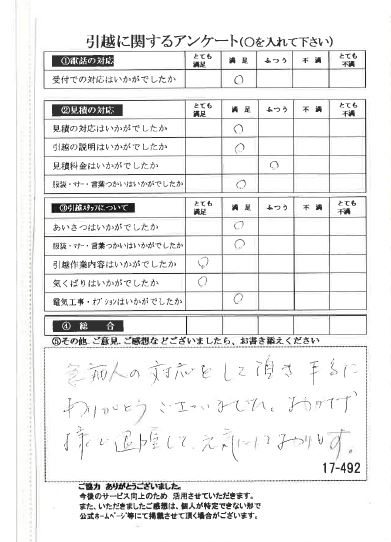 引越に関するアンケート(○を入れて下さい)
①電話の対応 とても満足 満足 ふつう 不満 とても不満
受付での対応はいかがでしたか ○
②見積の対応 とても満足 満足 ふつう 不満 とても不満
見積の対応はいかがでしたか ○
引越の説明はいかがでしたか ○
見積料金はいかがでしたか ○
服装・マナー・言葉つかいはいかがでしたか ○
③引越スタッフについて とても満足 満足 ふつう 不満 とても不満
あいさつはいかがでしたか ○
服装・マナー・言葉つかいはいかがでしたか ○
引越作業内容はいかがでしたか ○
気くばりはいかがでしたか ○
電気工事・オプションはいかがでしたか ○
④総合
⑤その他、ご意見、ご感想などございましたら、お書き添えください
急病人の対応をして頂き本当に
ありがとうございました。おかげ
様で退院して、元気にしております。
17-492
ご協力 ありがとうございました。
今後のサービス向上のため 活用させていただきます。
また、いただきましたご感想は、個人が特定できない形で
公式ホームページ等にて掲載させて頂く場合がございます。